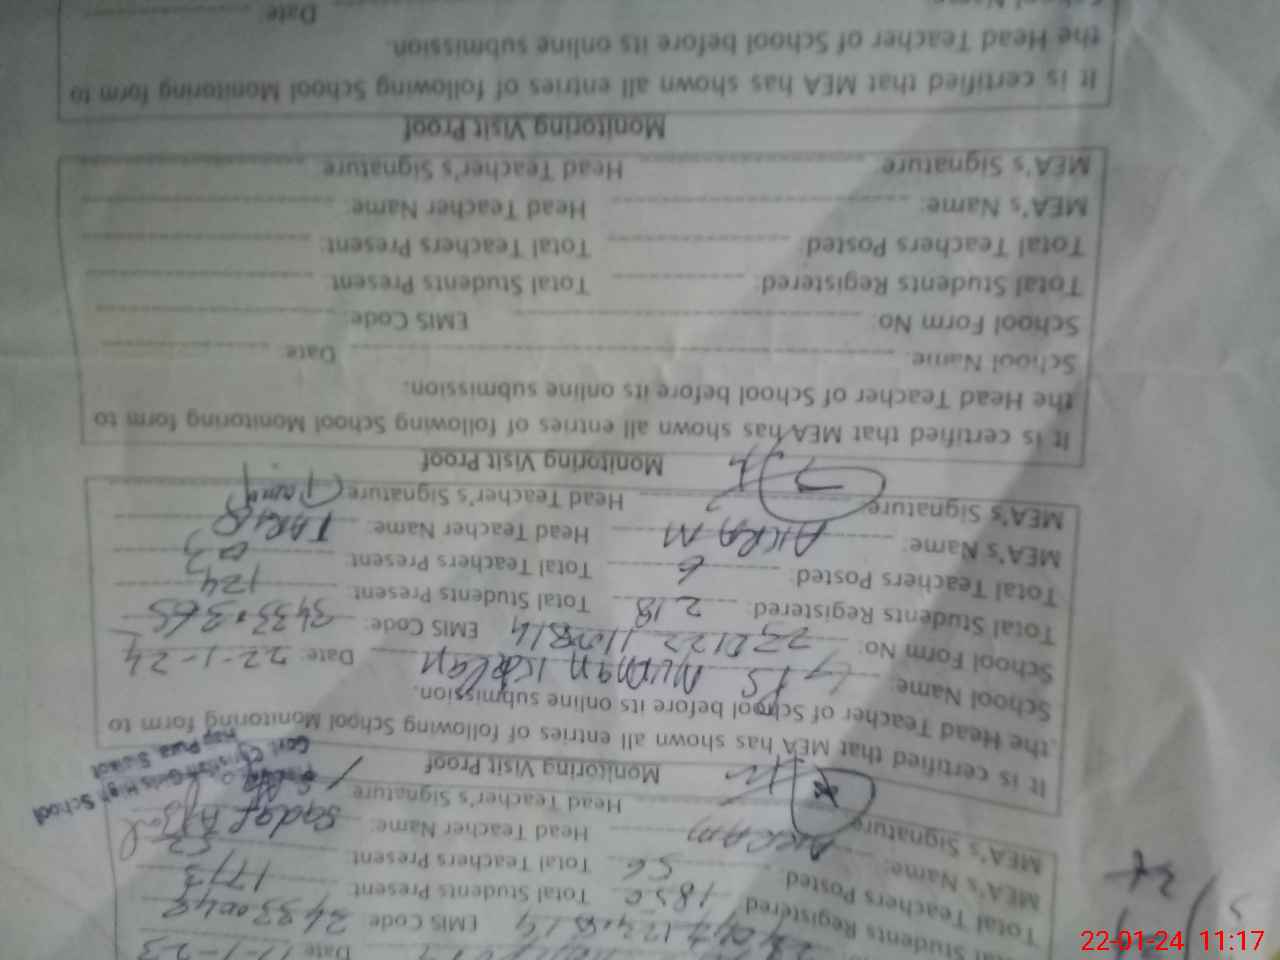 Date 17-1-23
EMIS Code 34330048
Total Students Registered 1850 Total Students Present: 1773
Total Teachers Posted 56 Total Teachers Present: 52
MEA's Name: AKRAM Head Teacher Name: Sadaf Afzal
MEA's Signature Head Teacher's Signature
Govt. Christian Girls High School
Haji Pura Sialkot
Monitoring Visit Proof
It is certified that MEA has shown all entries of following School Monitoring form to
the Head Teacher of School before its online submission.
School Name: GPS Numan Kalan Date: 22-1-24
School Form No: EMIS Code: 34330365
Total Students Registered: 218 Total Students Present: 124
Total Teachers Posted: 6 Total Teachers Present: 03
MEA's Name: AKRAM Head Teacher Name: TARIQ
MEA's Signature Head Teacher's Signature
Monitoring Visit Proof
It is certified that MEA has shown all entries of following School Monitoring form to
the Head Teacher of School before its online submission.
School Name: Date:
School Form No: EMIS Code:
Total Students Registered: Total Students Present:
Total Teachers Posted: Total Teachers Present:
MEA's Name: Head Teacher Name:
MEA's Signature: Head Teacher's Signature:
Monitoring Visit Proof
It is certified that MEA has shown all entries of following School Monitoring form to
the Head Teacher of School before its online submission.
School Name: Date:
22-01-24 11:17